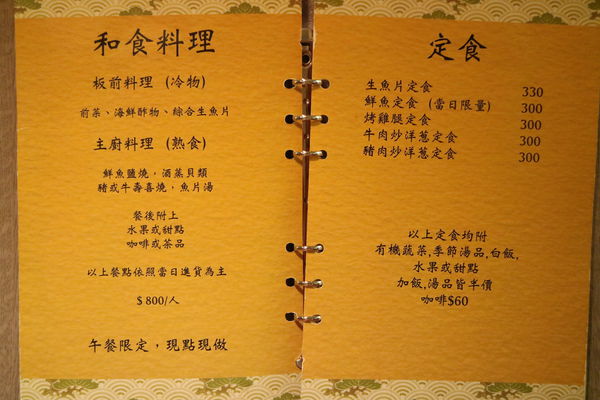 和食料理
板前料理 (冷物)
前菜、海鮮酢物、綜合生魚片
主廚料理 (熟食)
鮮魚鹽燒，酒蒸貝類
豬或牛壽喜燒，魚片湯
餐後附上
水果或甜點
咖啡或茶品
以上餐點依照當日進貨為主
$800/人
午餐限定，現點現做
定食
生魚片定食 330
鮮魚定食 (當日限量) 300
烤雞腿定食 300
牛肉炒洋蔥定食 300
豬肉炒洋蔥定食 300
以上定食均附
有機蔬菜,季節湯品,白飯,
水果或甜點
加飯,湯品皆半價
咖啡$60